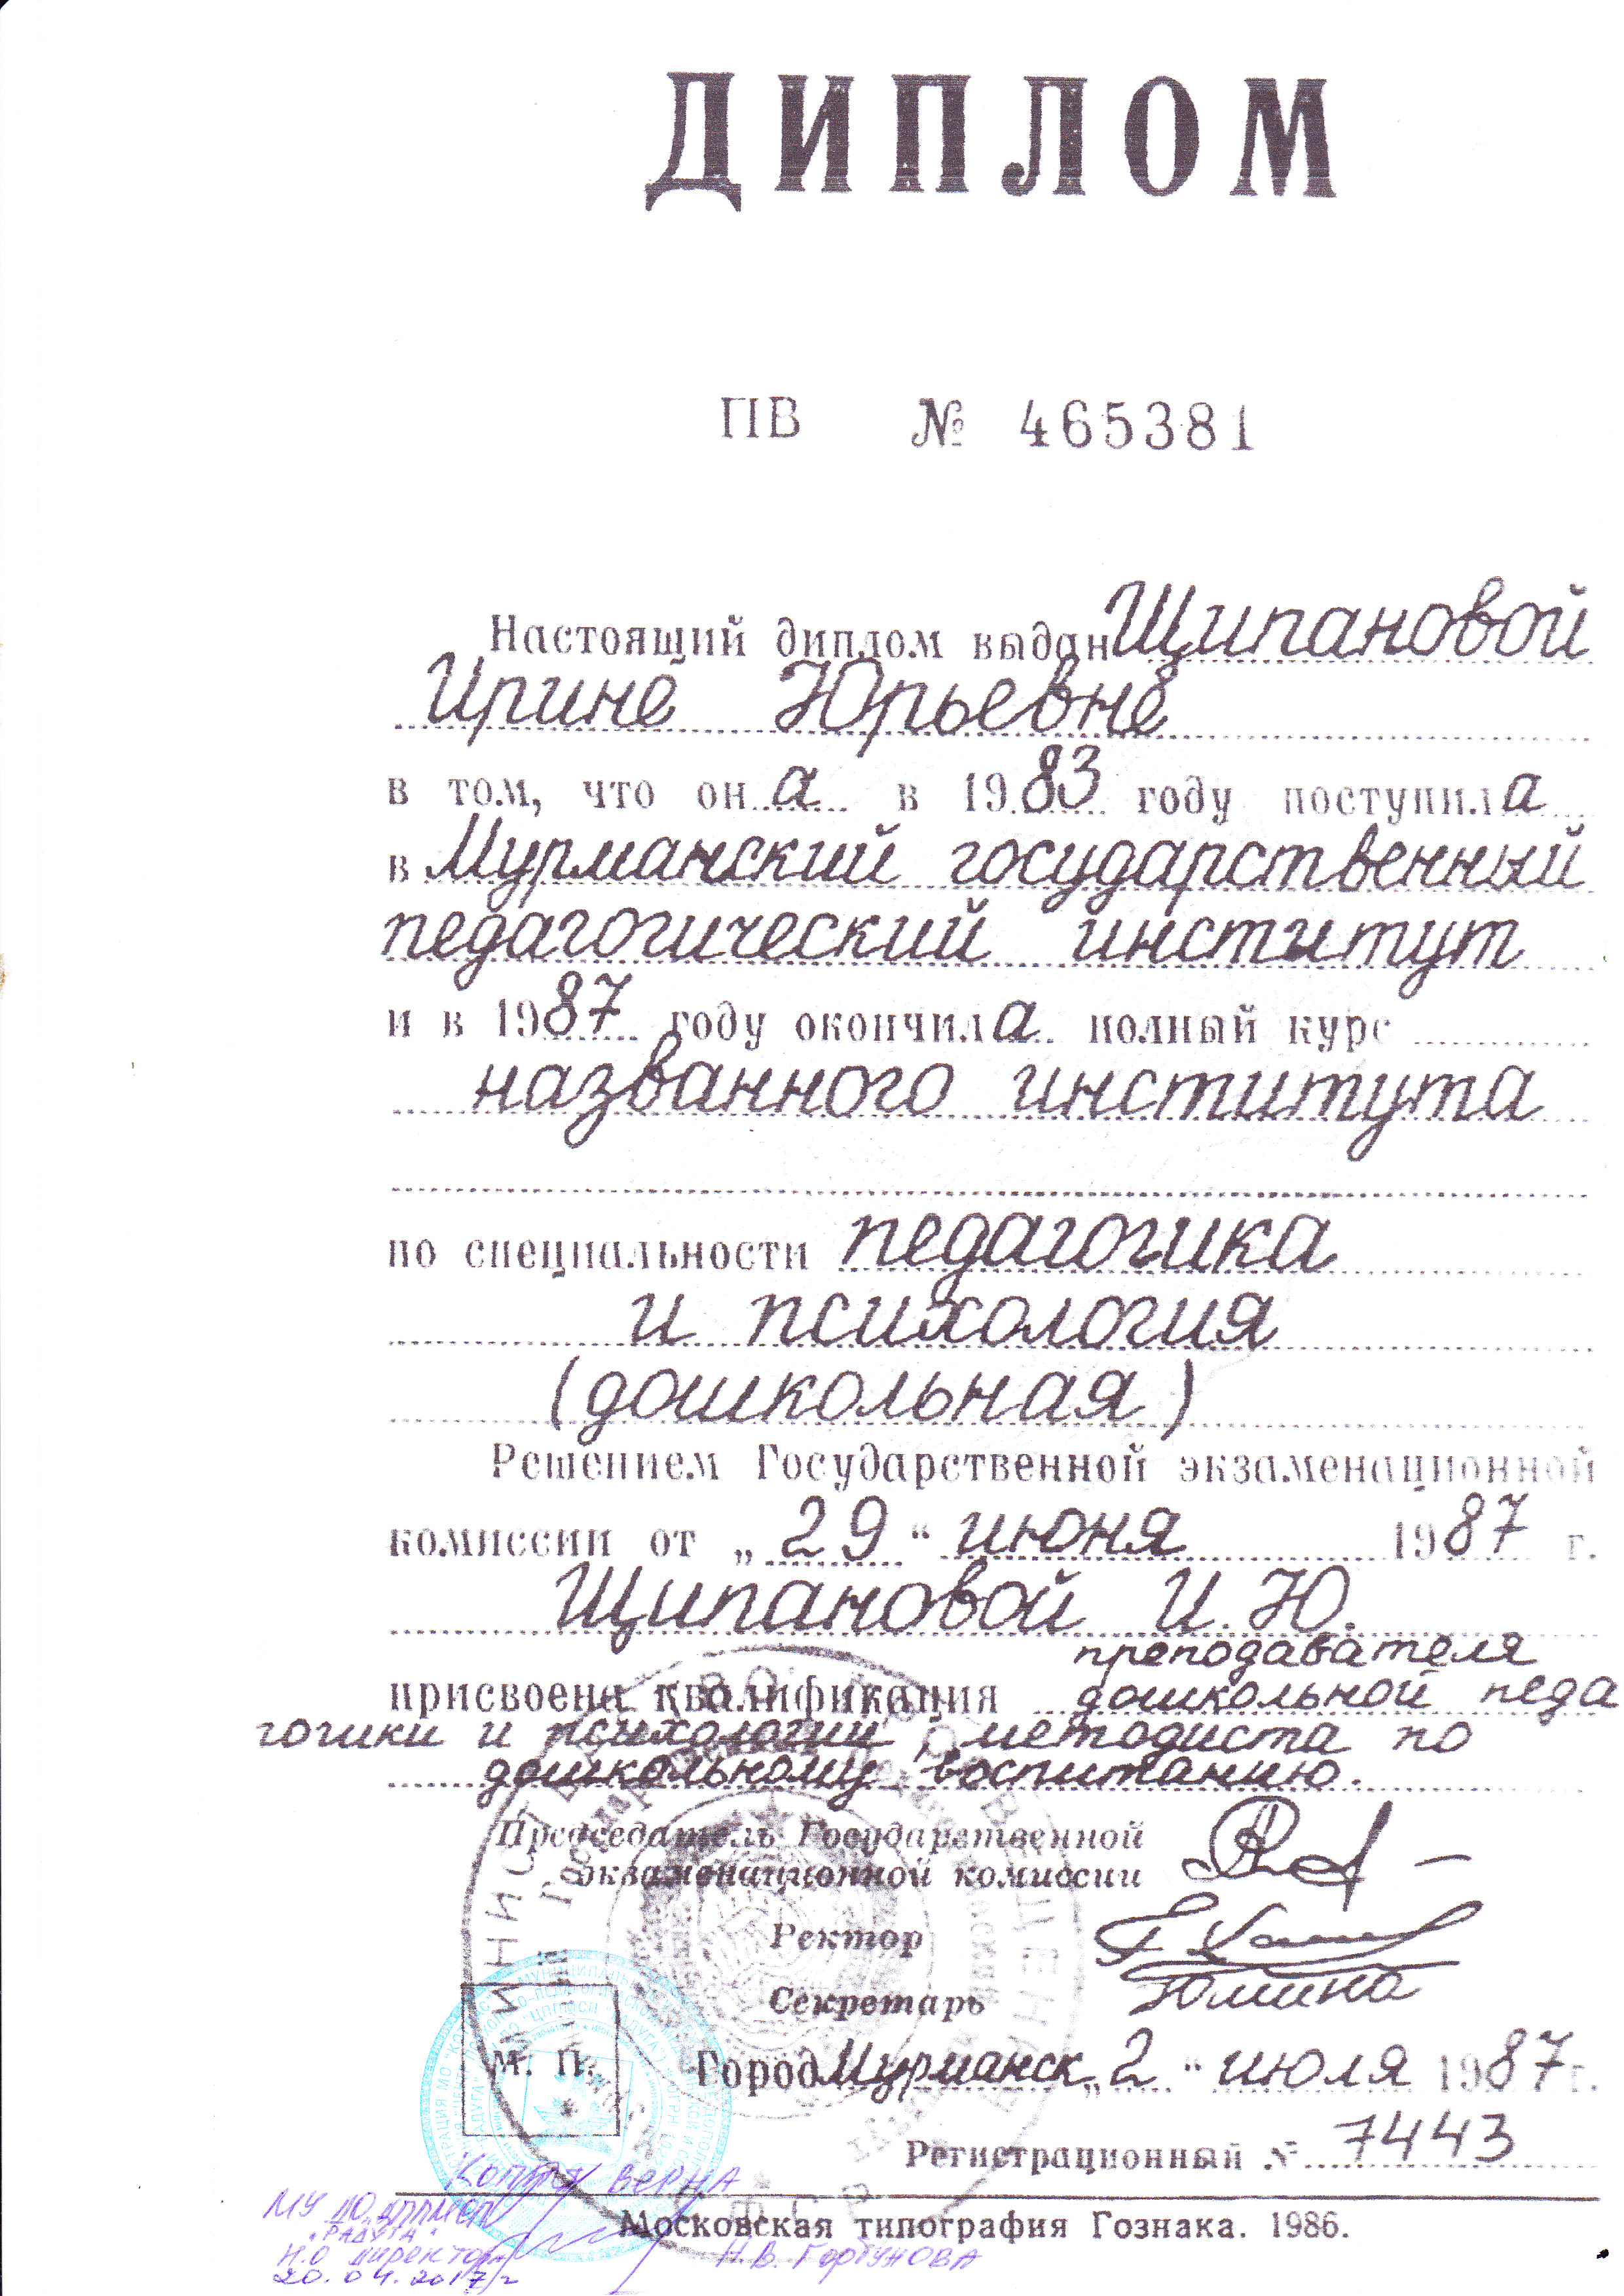 ДИПЛОМ
ПВ № 465381
Настоящий диплом выдан Щипановой
Ирине Юрьевне
в том, что она в 1983 году поступила
в Мурманский государственный
педагогический институт
и в 1987 году окончила полный курс
названного института
по специальности педагогика
и психология
(дошкольная)
Решением Государственной экзаменационной
комиссии от „29“ июня 1987 г.
Щипановой И.Ю.
преподавателя
присвоена квалификация дошкольной педа
гогики и психологии, методиста по
дошкольному воспитанию.
Председатель Государственной
экзаменационной комиссии
Ректор
Секретарь Юмина
М. П.
Город Мурманск „2“ июля 1987г.
Регистрационный № 7443
Копия верна
Московская типография Гознака. 1986.
МУ ДО
"РАДУГА"
И.О директора Н.В. Горбунова
20.04.2017г